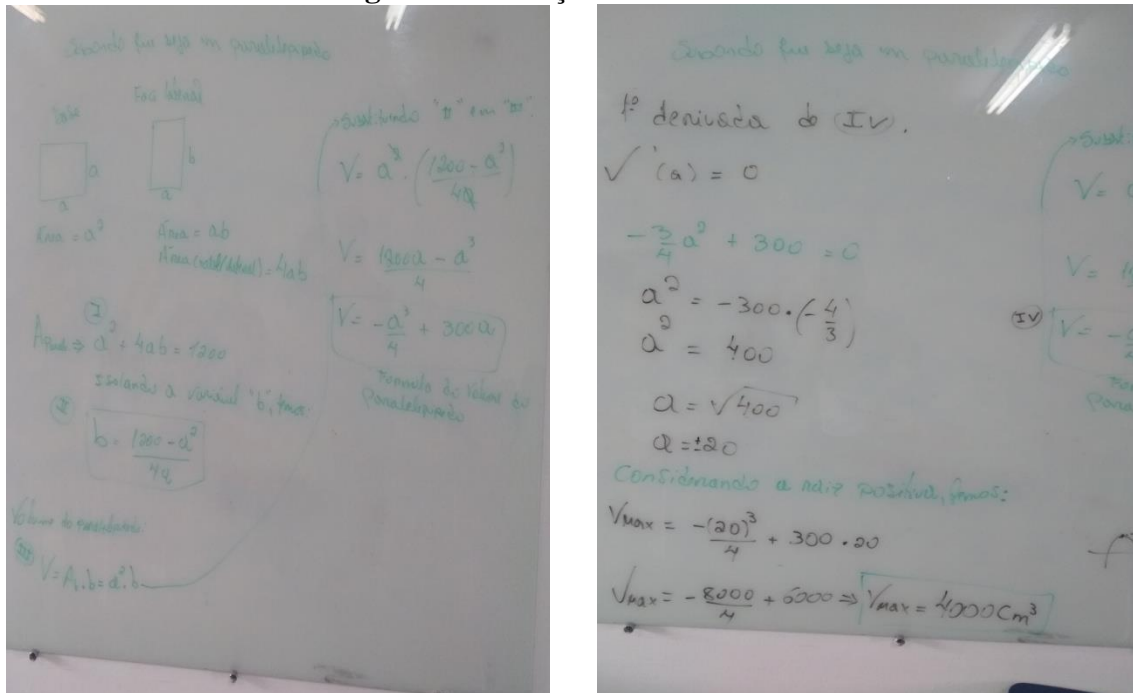 Supondo que seja um paralelepípedo
base
Face lateral
a
a
b
a
Área = a²
Área = ab
Área (total/lateral) = 4ab
I
⇒ a² + 4ab = 1200
Isolando a variável "b", temos:
II
b = (1200 - a²)/4a
Volume do paralelepípedo:
III
V = A₁.b = a².b
→ Substituindo "II" em "III".
V = a² . ((1200 - a²)/4a)
V = (1200a - a³)/4
V = -a³/4 + 300a
Formula do Volume do
Paralelepípedo
Supondo que seja um paralelepípedo
1ª derivada do IV.
V'(a) = 0
-3/4 a² + 300 = 0
a² = -300 . (-4/3)
a² = 400
a = √400
a = ±20
Considerando a raiz positiva, temos:
Vmax = -(20)³/4 + 300 . 20
Vmax = -8000/4 + 6000 ⇒ Vmax = 4000 Cm³
IV
V = -